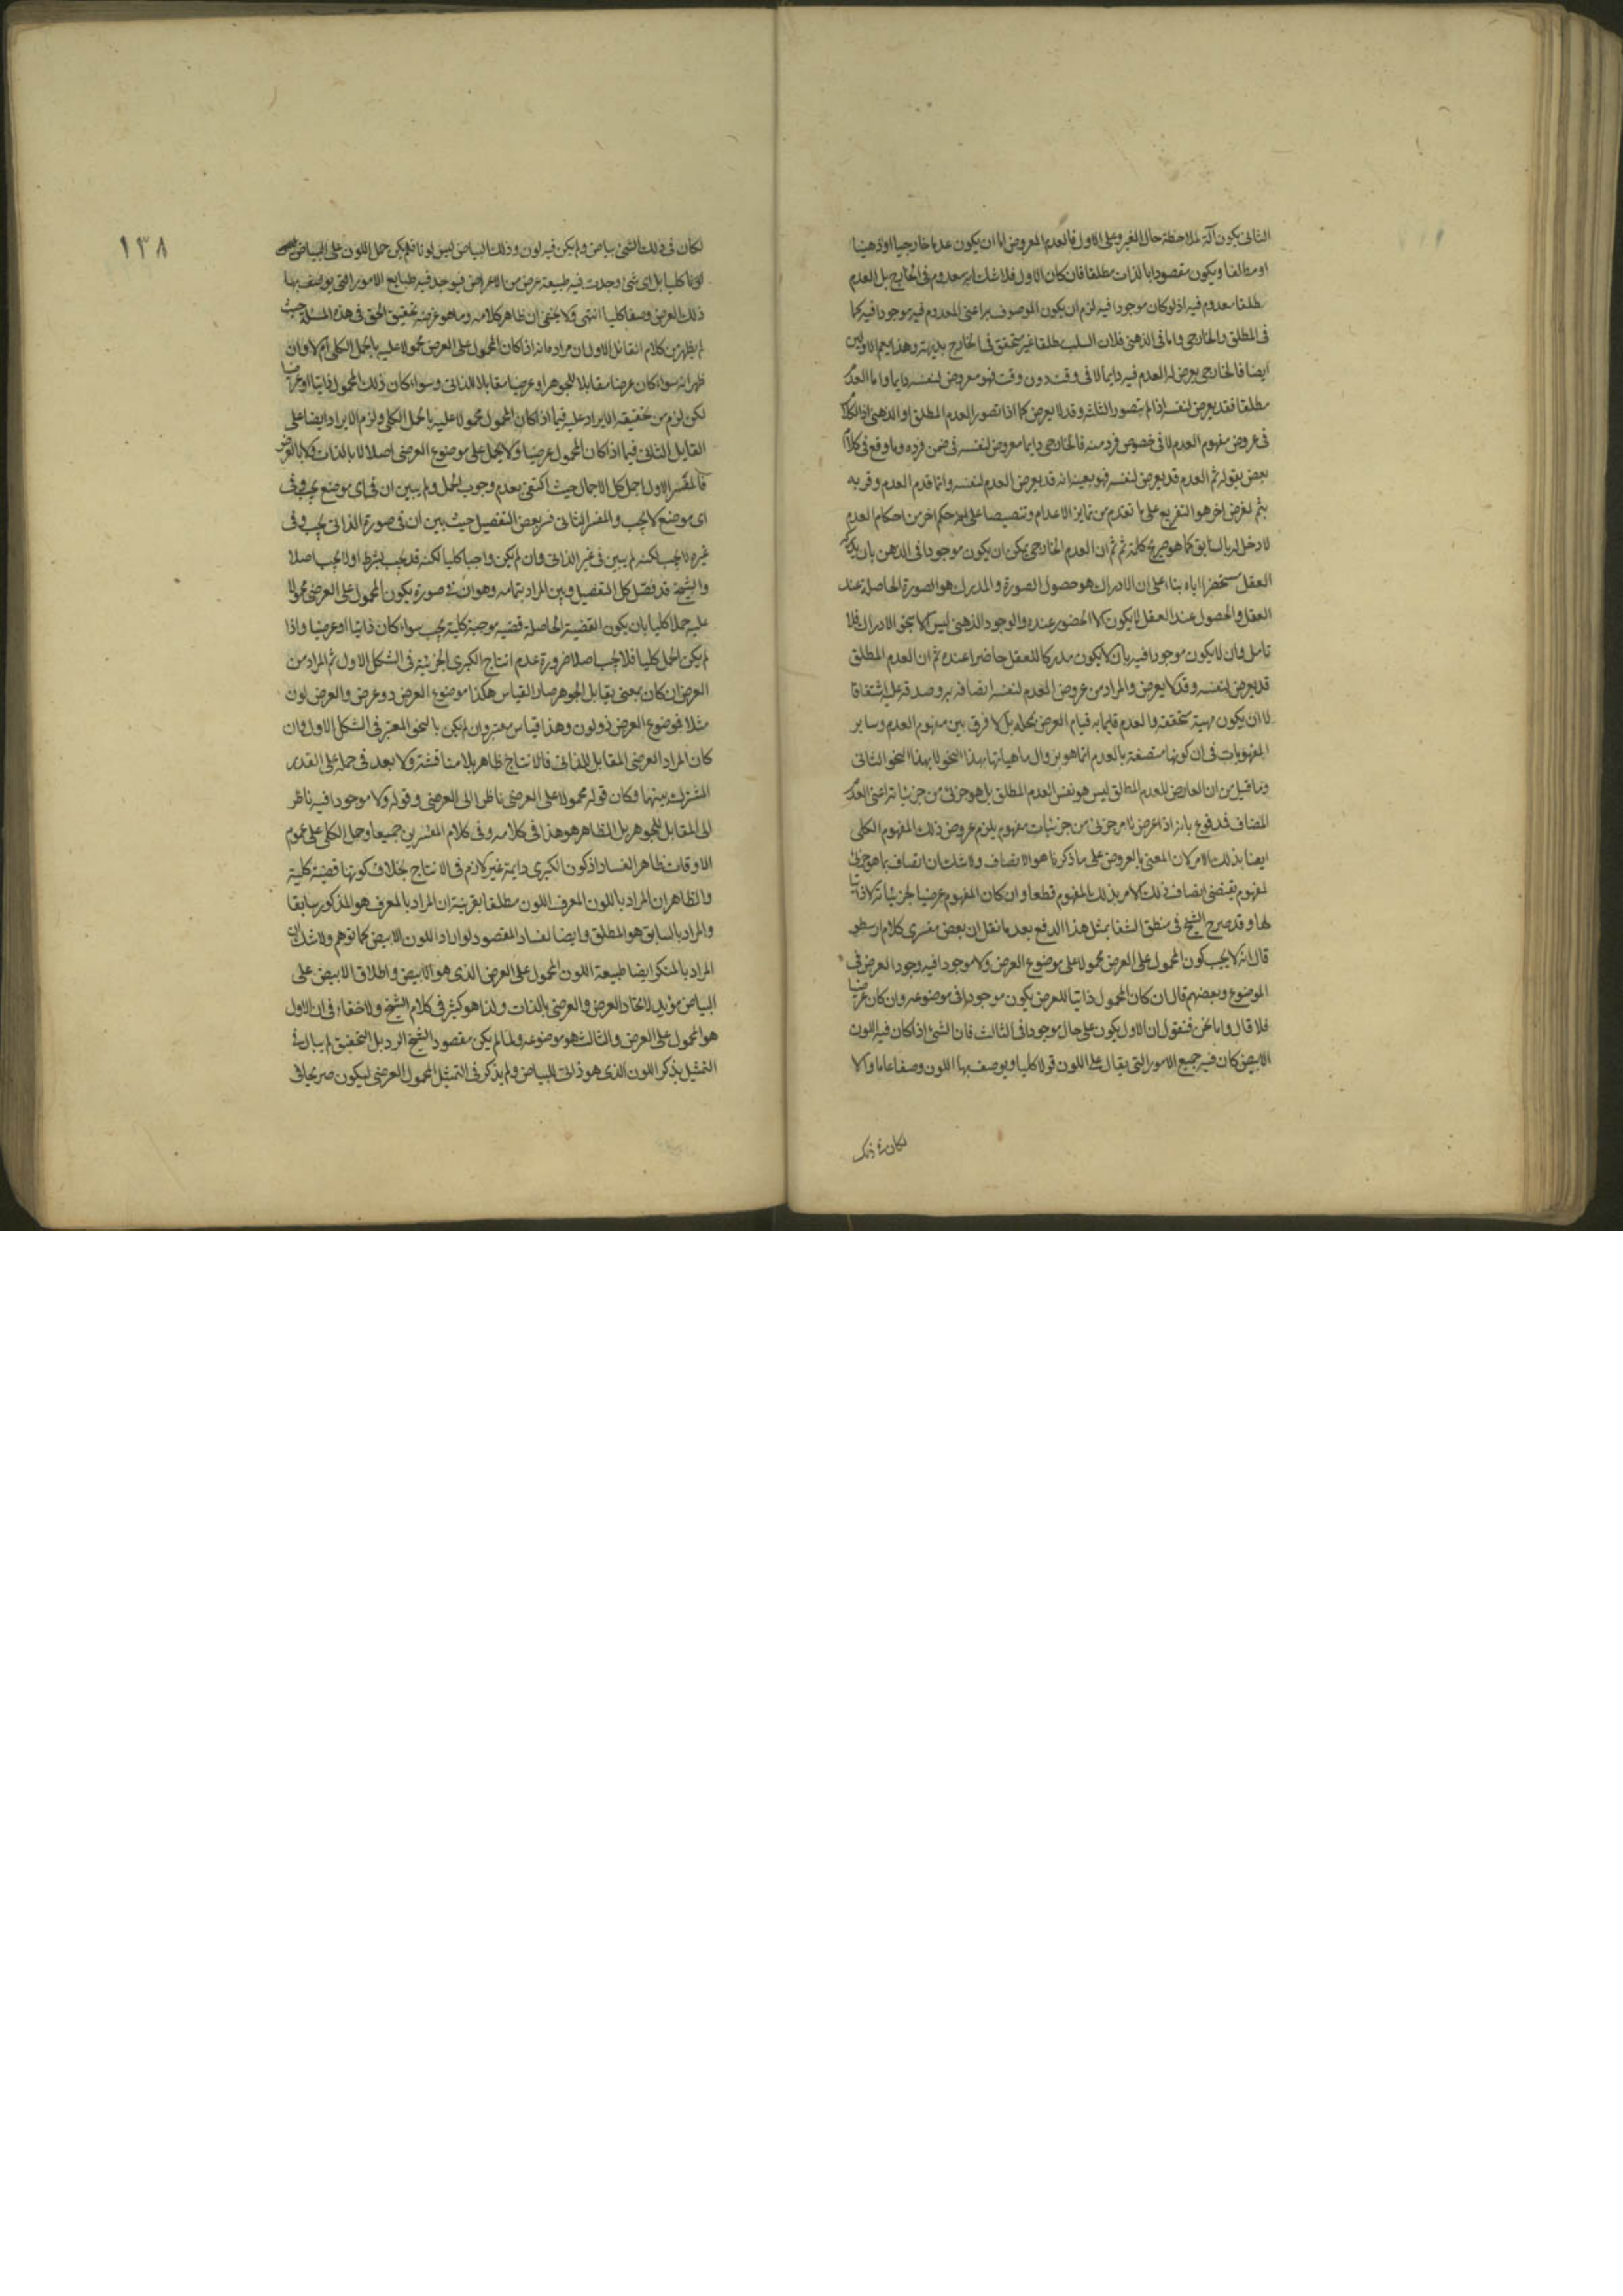 الثانى يكون آلة لملاحظة حال الغير وعلى الاول فالعدم المعروض اما ان يكون عدما خارجيا او ذهنيا
او مطلقا ويكون مقصودا بالذات مطلقا فان كان الاول فلا شك انه معدوم فى الخارج بل العدم
مطلقا معدوم فيه اذ لو كان موجودا فيه لزم ان يكون الموصوف به اعنى المعدوم فيه موجودا فيه كما
فى المطلق والخارجى واما فى الذهنى فلان السلب مطلقا غير متحقق فى الخارج بديهة وهذا يعم الاولين
ايضا فالخارجى يعرض له العدم فيه دايما لا فى وقت دون وقت فهو معروض لنفسه دايما واما العدم
مطلقا فقد يعرض لنفسه اذا لم يتصور الثلثة وقد لا يعرض كما اذا تصور العدم المطلق او الذهنى اذ الكلام
فى عروض مفهوم العدم لا فى خصوص فرد منه فالخارجى دايما معروض لنفسه فى ضمن فرده وما وقع فى كلام
بعض بقوله ثم العدم قد يعرض لنفسه فهو بعينه انه قد يعرض العدم لنفسه وانما قدم العدم وقرنه
بثم لغرض اخر هو التفريع على ما تقدم من تمايز الاعدام وتنصيصا على انه حكم اخر من احكام العدم
لا دخل له بالسابق كما هو صريح كلمة ثم ثم ان العدم الخارجى يمكن ان يكون موجودا فى الذهن بان يدركه
العقل مستحضرا اياه بناء على ان الادراك هو حصول الصورة والمدرك هو الصورة الحاصلة عند
العقل والحصول عند العقل لا يكون الا الحضور عنده والوجود الذهنى ليس الا بنحو الادراك فلا
تامل وان لا يكون موجودا فيه بان لا يكون مدركا للعقل حاضرا عنده ثم ان العدم المطلق
قد يعرض لنفسه وقد لا يعرض والمراد من عروض العدم لنفسه اتصافه به وصدقه عليه اشتقاقا
لا ان يكون مهية متحققة والعدم قايما به قيام العرض بمحله بل لا فرق بين مفهوم العدم وساير
المفهومات فى ان كونها متصفة بالعدم انما هو بزوال ماهياتها بهذا النحو لا بهذا النحو الثانى
وما قيل من ان العارض للعدم المطلق ليس هو نفس العدم المطلق بل هو جزئى من جزئياته اعنى العدم
المضاف فمدفوع بانه اذا عرض لامر جزئى من جزئيات مفهوم يلزم عروض ذلك المفهوم الكلى
ايضا بذلك الامر لان المعنى بالعروض على ما ذكرنا هو الاتصاف ولا شك ان اتصاف بما هو جزئى
لمفهوم يقتضى اتصاف ذلك الامر بذلك المفهوم قطعا وان كان المفهوم عرضيا لجزئياته لا ذاتيا
لها وقد صرح الشيخ فى منطق الشفا بمثل هذا الدفع بعد ما نقل ان بعض مفسرى كلام ارسطو
قال انه لا يجب كون المحمول على العرض محمولا على موضوع العرض ولا موجودا فيه وجود العرض فى
الموضوع وبعضهم قال ان كان المحمول ذاتيا للعرض يكون موجودا فى موضوعه وان كان عرضيا
فلا قال واما نحن فنقول ان الاول يكون على حال موجودا فى الثالث فان الشئ اذا كان فيه اللون
الابيض كان فيه جميع الامور التى يقال على اللون قولا كليا ويوصف بها اللون وصفا عاما والا
لكان فى ذلك
١٣٨
لكان فى ذلك الشئ بياض ولم يكن فيه لون وذلك البياض ليس لونا فلم يكن حمل اللون على البياض
لونا كليا بل اى شئ وجدت فيه طبيعة عرض من الاعراض فيوجد فيه طبايع الامور التى يوصف بها
ذلك العرض وصفا كليا انتهى ولا يخفى ان ظاهر كلامه وما هو غرضه تحقيق الحق فى هذه المسئلة حيث
لم يظهر من كلام القائل الاول ان مراده انه اذا كان المحمول على العرض محمولا عليه بالحمل الكلى ام لا وان
ظهر انه سواء كان عرضا مقابلا للجوهر او عرضيا مقابلا للذاتى وسواء كان ذلك المحمول ذاتيا او عرضيا
لكن لزم من تحقيقه الايراد عليه فيما اذا كان المحمول محمولا عليه بالحمل الكلى ولزم الايراد ايضا على
القايل الثانى فيما اذا كان المحمول عرضيا ولا يحمل على موضوع العرضى اصلا لا بالذات ولا بالعرض
فالمفسر الاول اجمل كل الاجمال حيث اكتفى بعدم وجوب الحمل ولم يبين ان فى اى موضع يجب وفى
اى موضع لا يجب والمفسر الثانى فسر بعض التفصيل حيث بين ان فى صورة الذاتى يجب وفى
غيره لا يجب لكنه لم يبين فى غير الذاتى وان لم يكن واجبا كليا لكنه قد يجب بشرط او لا يجب اصلا
والشيخ قد فصل كل التفصيل وبين المراد بتمامه وهو ان فى صورة يكون المحمول على العرضى محمولا
عليه حملا كليا بان يكون القضية الحاصلة قضية موجبة كلية يجب سواء كان ذاتيا او عرضيا واذا
لم يكن الحمل كليا فلا يجب اصلا ضرورة عدم انتاج الكبرى الجزئية فى الشكل الاول ثم المراد من
العرض ان كان بمعنى يقابل الجوهر صار القياس هكذا موضوع العرض ذو عرض والعرض لون
مثلا فموضوع العرض ذو لون وهذا قياس معتبر وان لم يكن بالنحو المعتبر فى الشكل الاول وان
كان المراد العرضى المقابل للذاتى فالانتاج ظاهر بلا مناقشة ولا بعد فى حمله على القدر
المشترك بينهما وكان قوله محمولا على العرضى ناظر الى العرضى وقوله ولا موجودا فيه ناظر
الى المقابل للجوهر بل الظاهر هو هذا فى كلامه وفى كلام المفسرين جميعا وحمل الكلى على عموم
الاوقات ظاهر الفساد اذ كون الكبرى دايمة غير لازم فى الانتاج بخلاف كونها قضية كلية
والظاهر ان المراد باللون المعرف اللون مطلقا بقرينة ان المراد بالمعرف هو المذكور سابقا
والمراد بالسابق هو المطلق وايضا لفساد المقصود لو اراد اللون الابيض كما توهم ولا شك ان
المراد بالمنكر ايضا طبيعة اللون المحمول على العرض الذى هو الابيض واطلاق الابيض على
البياض مؤيد لاتحاد العرض والعرضى بالذات ولذا هو كثير فى كلام الشيخ ولا خفاء فى ان الاول
هو المحمول على العرض والثالث هو موضوعه ولما لم يكن مقصود الشيخ الرد بل التحقيق لم يبال فى
التمثيل بذكر اللون الذى هو ذاتى للبياض ولم يذكر فى التمثيل المحمول العرضى ليكون صريحا فى